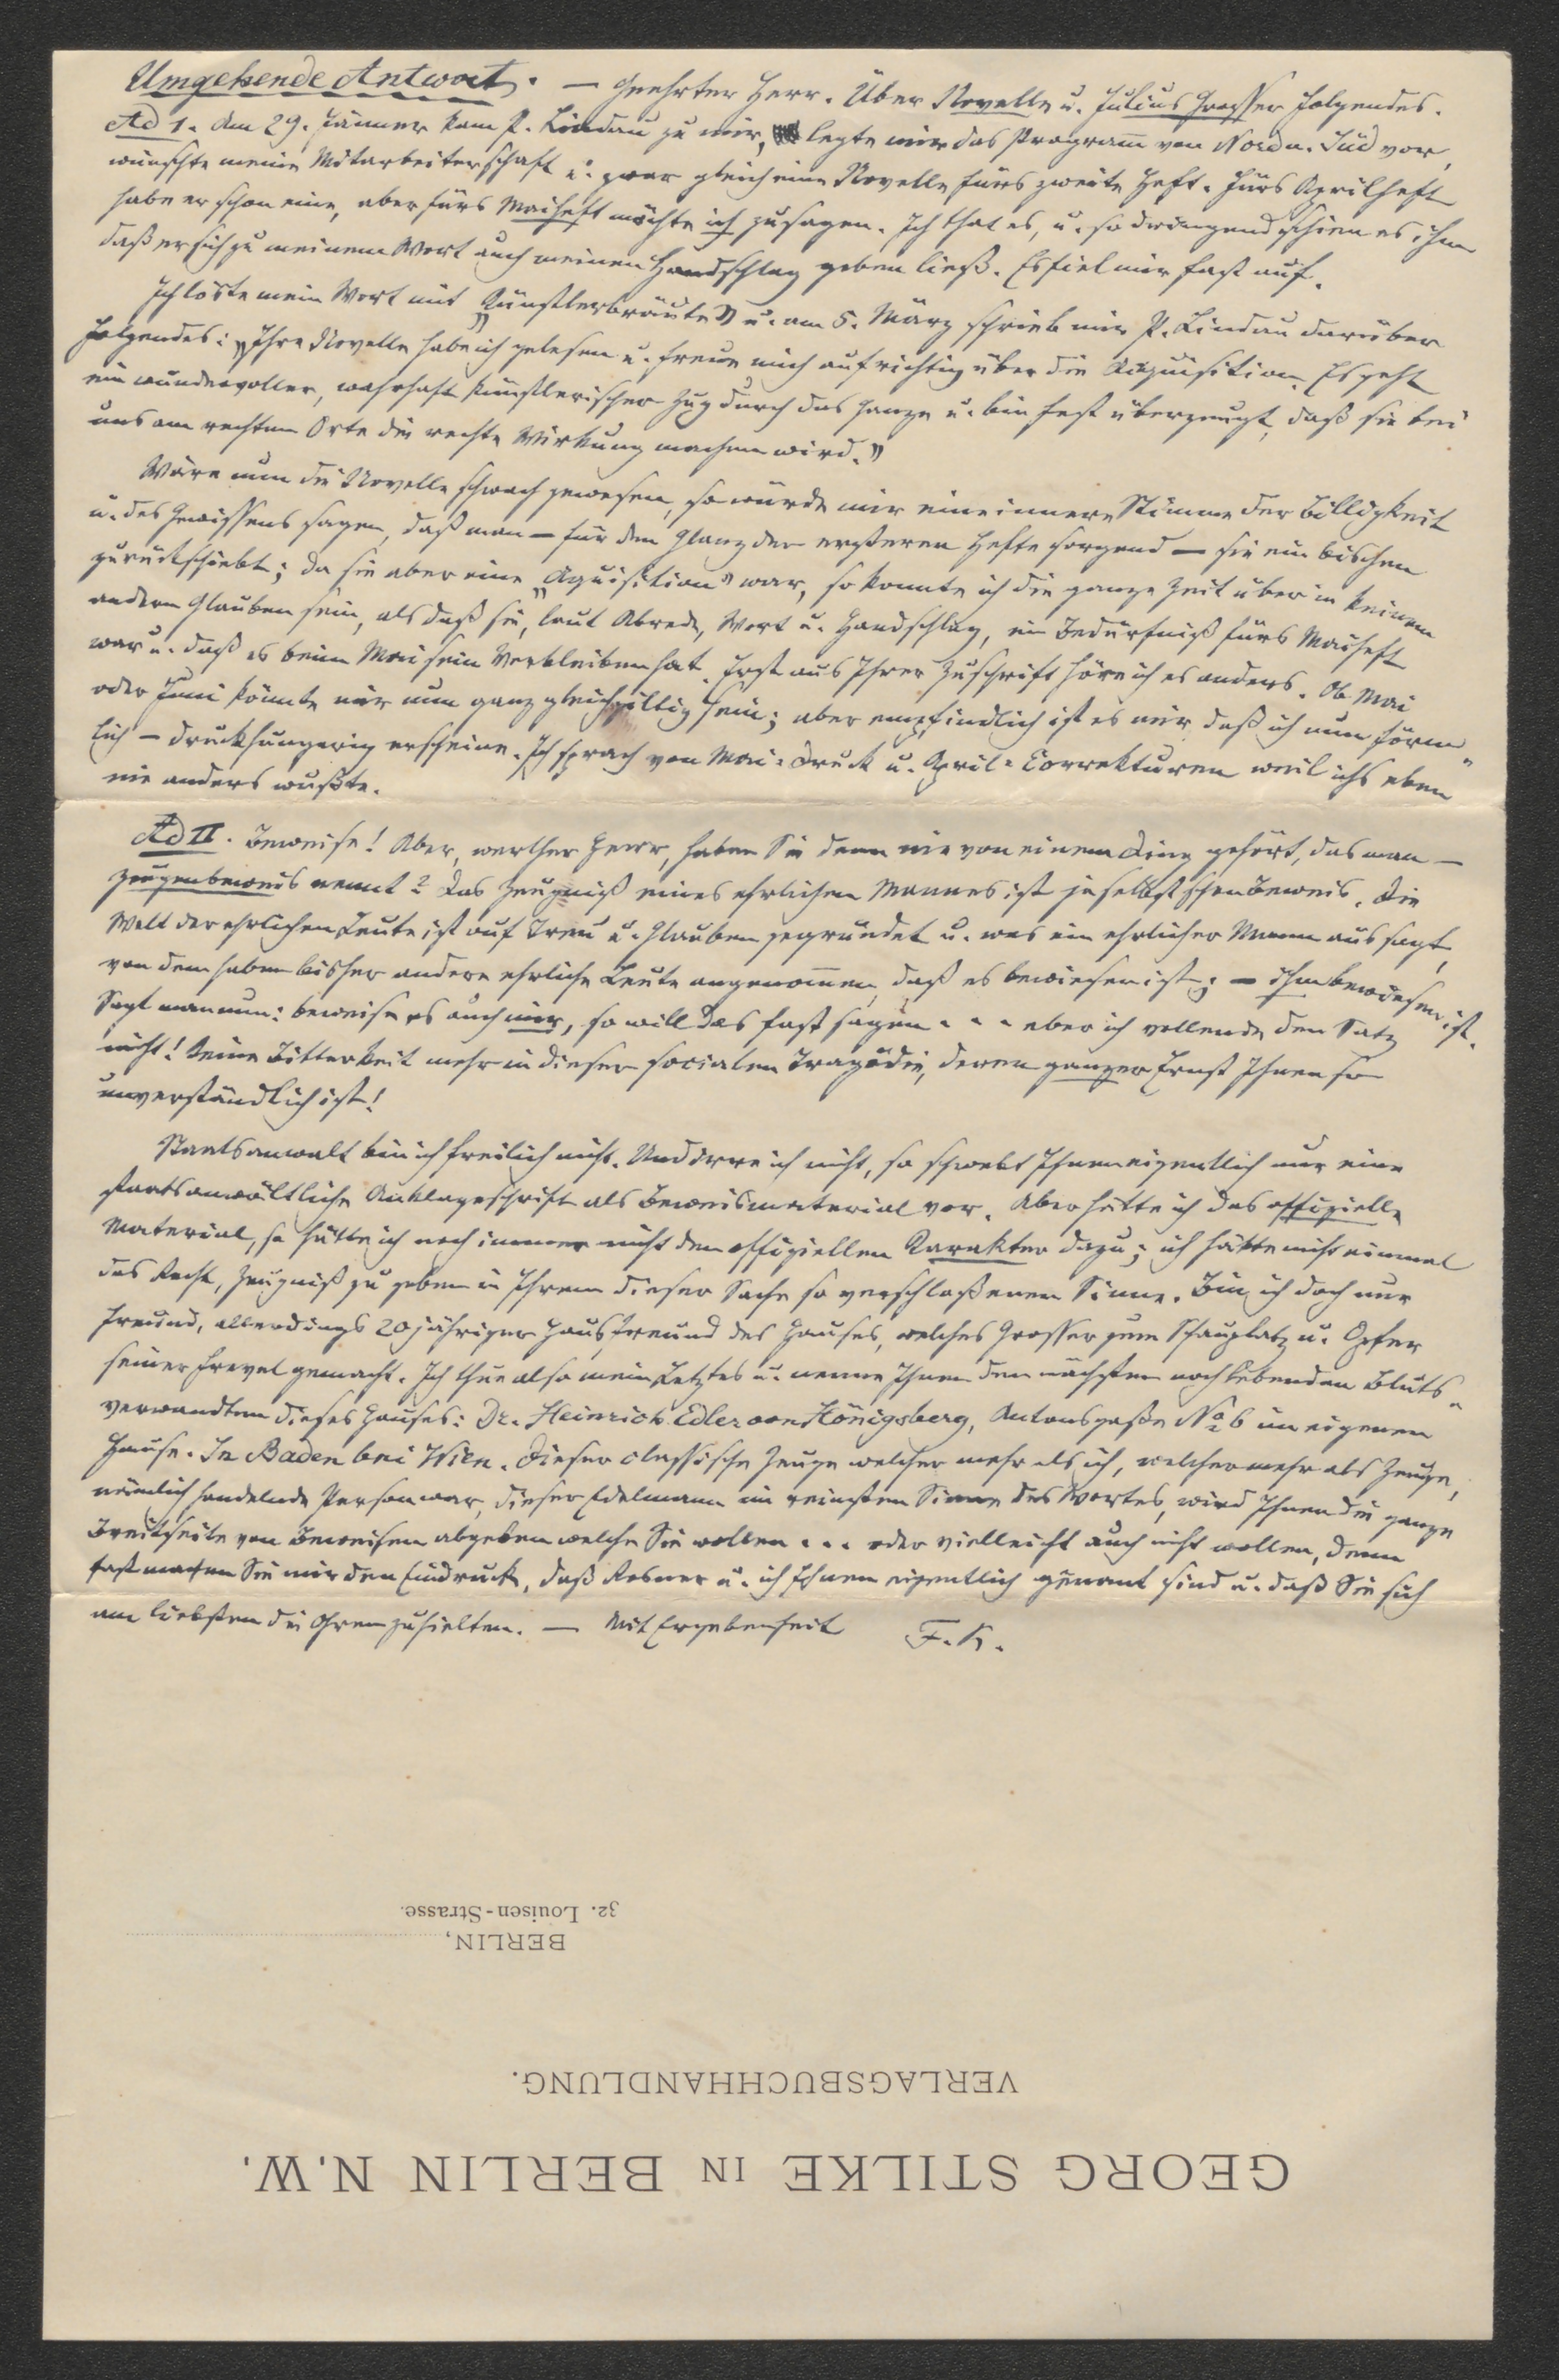 Umgehende Antwort. — Geehrter Herr. Über Novelle u. Julius Grosser Folgendes.
Ad 1. Am 29. Jänner kam P. Lindau zu mir, legte mir das Program̅ von Nord u. Süd vor,
wünschte meine Mitarbeiterschaft u. zwar gleich eine Novelle fürs zweite Heft. Fürs Aprilheft
habe er schon eine, aber fürs Maiheft möchte ich zusagen. Ich that es, u. so dringend schien es ihm
daß er sich zu meinem Wort auch meinen Handschlag geben ließ. Es fiel mir fast auf.
Ich löste mein Wort mit „Künstlerbräute" u. am 5. März schrieb mir P. Lindau darüber
Folgendes: „Ihre Novelle habe ich gelesen u. freue mich aufrichtig über die Aquisition. Es geht
ein wundervoller, wahrhaft künstlerischer Zug durch das Ganze u. bin fest überzeugt, daß sie bei
uns am rechten Orte die rechte Wirkung machen wird."
Wäre nun die Novelle schwach gewesen, so würde mir eine innere Stimme der Billigkeit
u. des Gewissens sagen, daß man — für den Glanz der ersteren Hefte sorgend — sie ein bischen
zurückschiebt; da sie aber eine „Aquisition" war, so konnte ich die ganze Zeit über in keinem
andern Glauben sein, als daß sie, laut Abrede, Wort u. Handschlag, ein Bedürfniß fürs Maiheft
war u. daß es beim Mai sein Verbleiben hat. Erst aus Ihrer Zuschrift höre ich es anders. Ob Mai
oder Juni könnte mir nun ganz gleichgiltig sein; aber empfindlich ist es mir, daß ich nun förm-
lich — druckhungerig erscheine. Ich sprach von Mai-Druck u. April-Correkturen weil ichs eben
nie anders wußte.
Ad II. Beweise! Aber, werther Herr, haben Sie denn nie von einem Ding gehört, das man —
Zeugenbeweis nennt? Das Zeugniß eines ehrlichen Mannes ist ja selbst schon Beweis. Die
Welt der ehrlichen Leute ist auf Treu u. Glauben gegründet u. was ein ehrlicher Mann aussagt,
von dem haben bisher andere ehrliche Leute angenom̅en, daß es bewiesen ist; — ihm bewiesen ist.
Sagt man nun: beweise es auch mir, so will das fast sagen . . . aber ich vollende den Satz
nicht! Keine Bitterkeit mehr in dieser socialen Tragödie, deren ganzer Ernst Ihnen so
unverständlich ist!
Staatsanwalt bin ich freilich nicht. Und irre ich nicht, so schwebt Ihnen eigentlich nur eine
staatsanwältliche Anklageschrift als Beweismaterial vor. Aber hätte ich das offizielle
Material, so hätte ich noch immer nicht den offiziellen Karakter dazu; ich hätte nicht einmal
das Recht, Zeugniß zu geben in Ihrem dieser Sache so verschloßenen Sinne. Bin ich doch nur
Freund, allerdings 20jähriger Hausfreund des Hauses, welches Grosser zum Schauplatz u. Opfer
seiner Frevel gemacht. Ich thue also mein Letztes u. nenne Ihnen den nächsten noch lebenden Bluts-
verwandten dieses Hauses: Dr. Heinrich Edler von Königsberg, Antonsgaße No 6 im eigenen
Hause. In Baden bei Wien. Dieser classische Zeuge welcher mehr als ich, welcher mehr als Zeuge,
nämlich handelnde Person war, dieser Edelmann im reinsten Sinne des Wortes, wird Ihnen die ganze
Breitseite von Beweisen abgeben welche Sie wollen . . . oder vielleicht auch nicht wollen, denn
fast machen Sie mir den Eindruck, daß Rosner u. ich Ihnen eigentlich genant sind u. daß Sie sich
am liebsten die Ohren zuhielten. — Mit Ergebenheit F. K.
32. Louisen-Strasse.
BERLIN,
VERLAGSBUCHHANDLUNG.
GEORG STILKE IN BERLIN N.W.